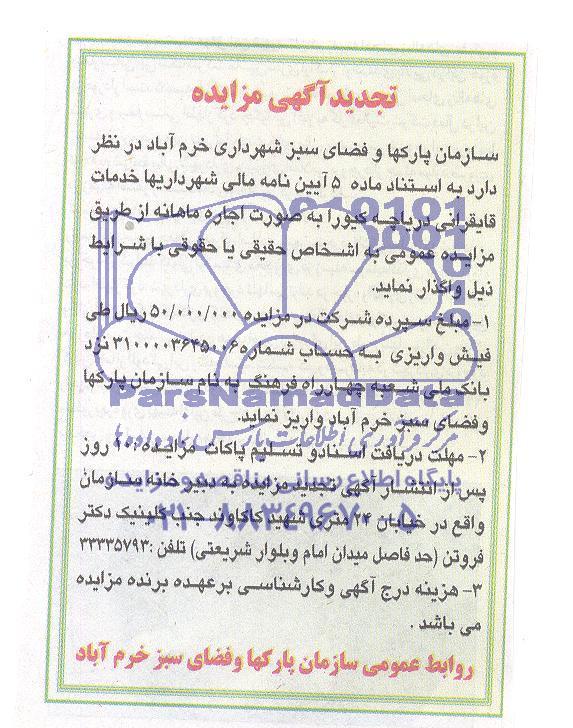 تجدید آگهی مزایده
سازمان پارکها و فضای سبز شهرداری خرم آباد در نظر
دارد به استناد ماده ۵ آیین نامه مالی شهرداریها خدمات
قایقرانی دریاچه کیو را به صورت اجاره ماهانه از طریق
مزایده عمومی به اشخاص حقیقی یا حقوقی با شرایط
ذیل واگذار نماید.
۱- مبلغ سپرده شرکت در مزایده ۵۰/۰۰۰/۰۰۰ ریال طی
فیش واریزی به حساب شماره نزد
بانک ملی شعبه چهارراه فرهنگ به نام سازمان پارکها
وفضای سبز خرم آباد واریز نماید.
۲- مهلت دریافت اسناد و تسلیم پاکات مزایده ۱۰ روز
پس از انتشار آگهی تجدید مزایده به دبیرخانه سازمان
واقع در خیابان ۲۴ متری شهید کاکاوند جنب کلینیک دکتر
فروتن (حد فاصل میدان امام وبلوار شریعتی) تلفن :۳۳۳۳۵۷۹۳
۳- هزینه درج آگهی وکارشناسی برعهده برنده مزایده
می باشد .
روابط عمومی سازمان پارکها وفضای سبز خرم آباد
ParsNamadData
مرکز فرآوری اطلاعات پارس نماد داده ها
پایگاه اطلاع رسانی مناقصه و مزایده
۰۲۱-۸۸۳۴۹۶۷۰-۵